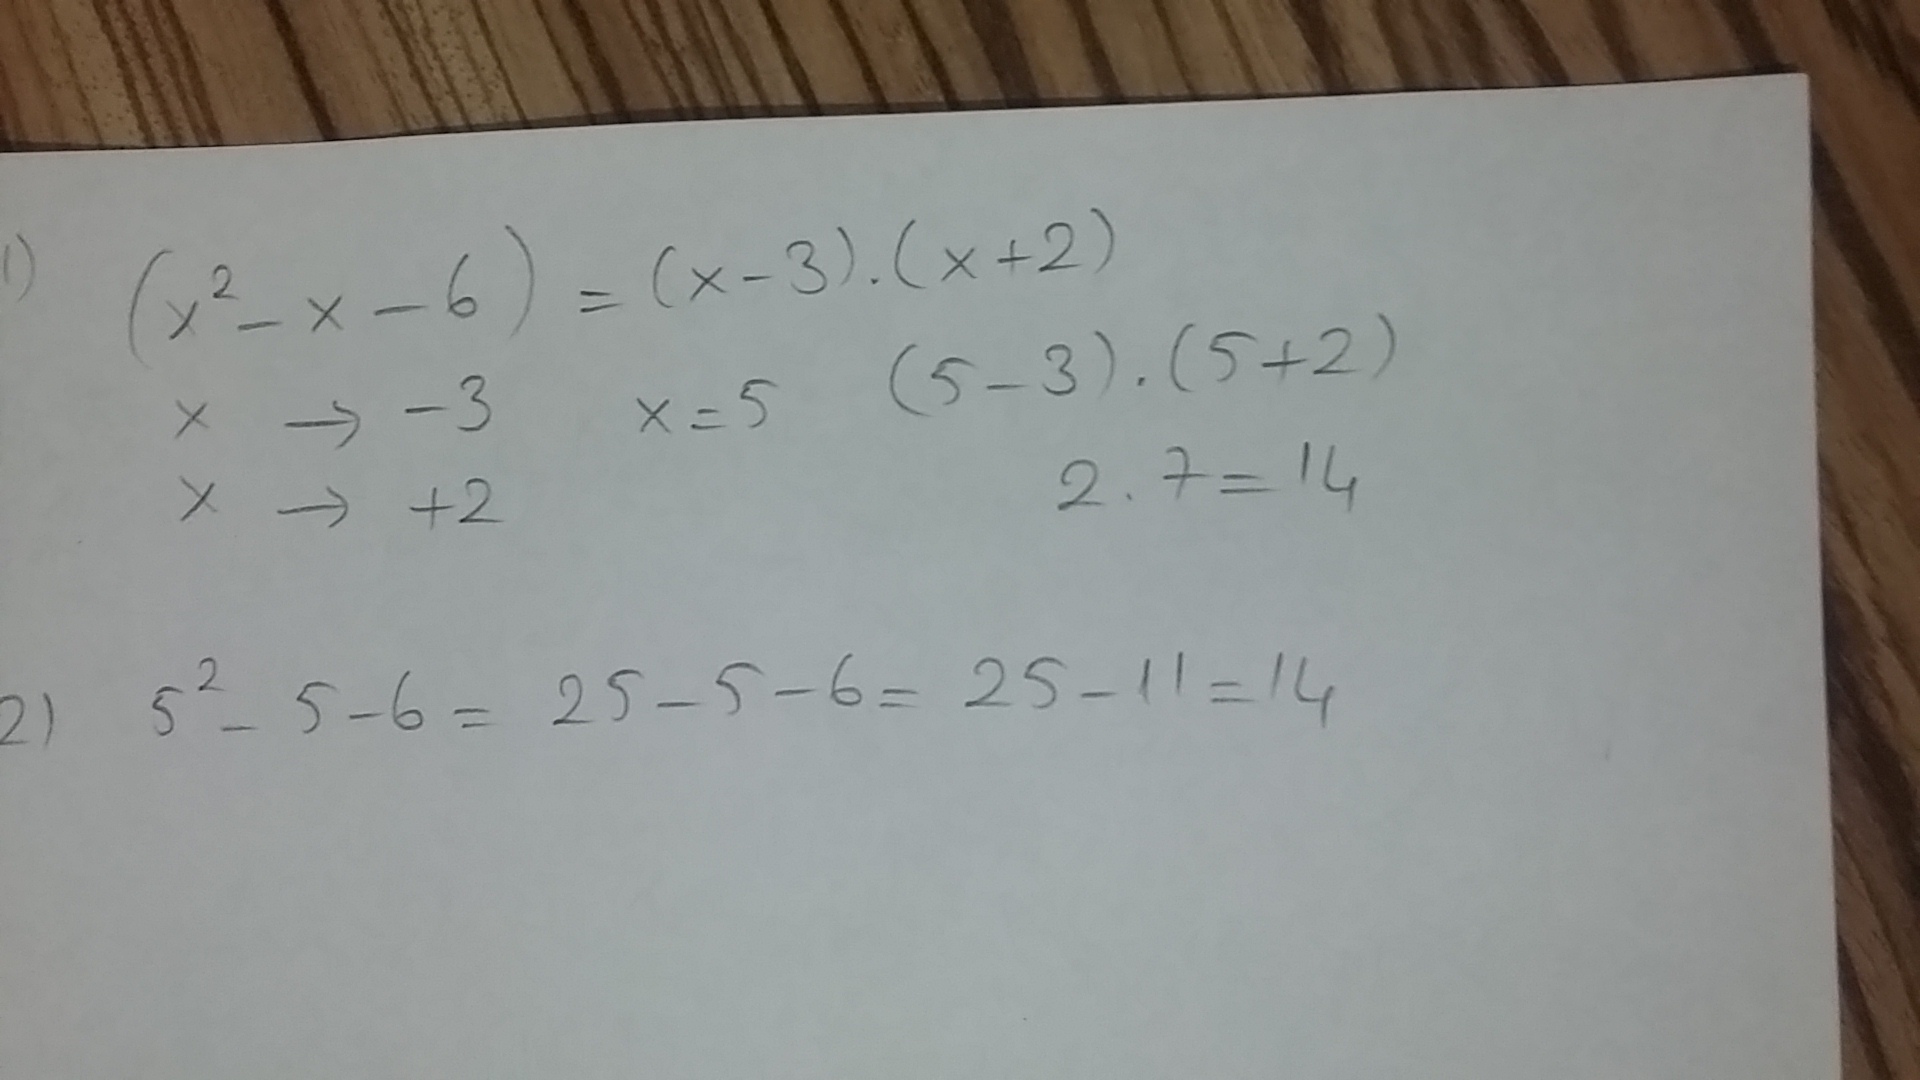 1) (x² - x - 6) = (x-3).(x+2)
x → -3 x=5 (5-3).(5+2)
x → +2 2.7=14
2) 5² - 5-6= 25-5-6= 25-11=14